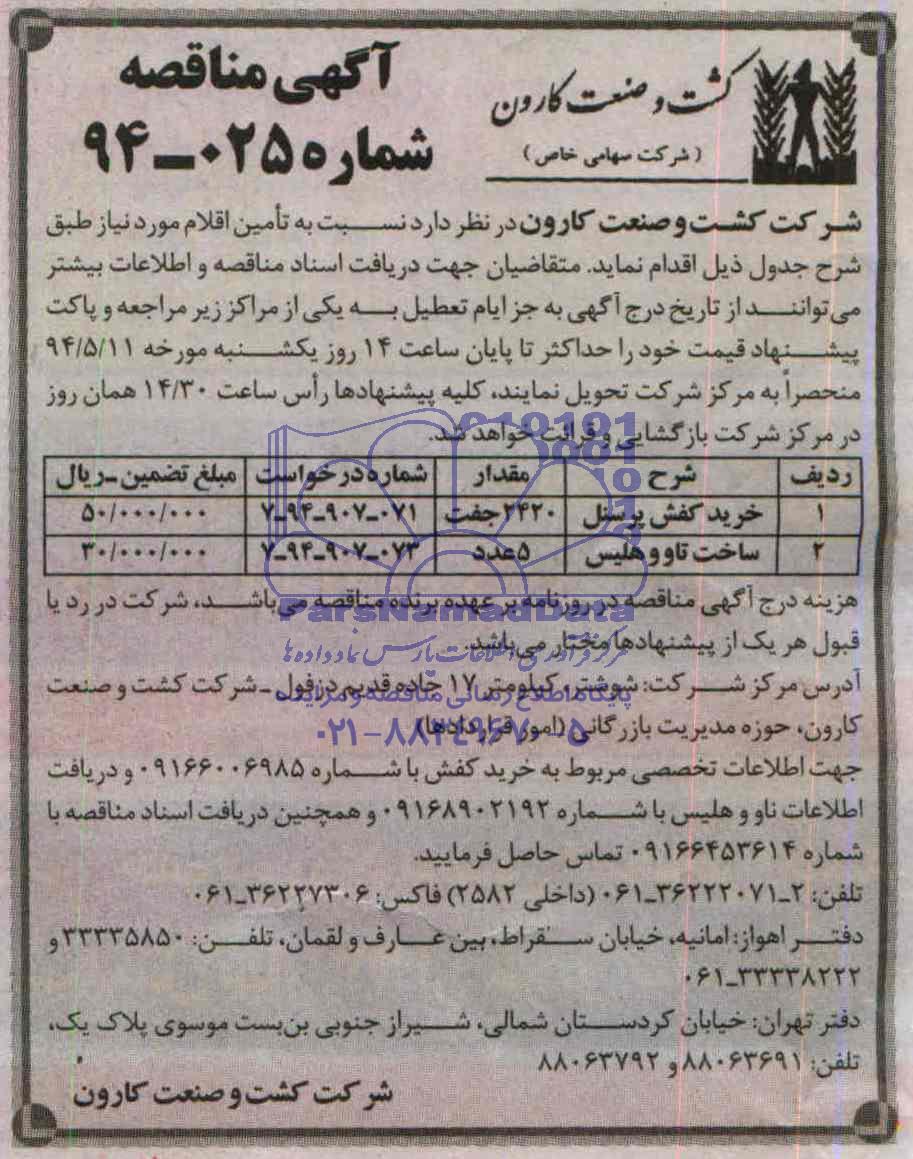 کشت و صنعت کارون
(شرکت سهامی خاص)
آگهی مناقصه
شماره ۰۲۵-۹۴
شرکت کشت و صنعت کارون در نظر دارد نسبت به تأمین اقلام مورد نیاز طبق
شرح جدول ذیل اقدام نماید. متقاضیان جهت دریافت اسناد مناقصه و اطلاعات بیشتر
می‌توانند از تاریخ درج آگهی به جز ایام تعطیل به یکی از مراکز زیر مراجعه و پاکت
پیشنهاد قیمت خود را حداکثر تا پایان ساعت ۱۴ روز یکشنبه مورخه ۹۴/۵/۱۱
منحصراً به مرکز شرکت تحویل نمایند، کلیه پیشنهادها رأس ساعت ۱۴/۳۰ همان روز
در مرکز شرکت بازگشایی و قرائت خواهد شد.
ردیف شرح مقدار شماره درخواست مبلغ تضمین-ریال
۱ خرید کفش پرسنل ۲۴۲۰ جفت ۷-۹۴-۹۰۷-۰۷۱ ۵۰/۰۰۰/۰۰۰
۲ ساخت تاو و هلیس ۵ عدد ۷-۹۴-۹۰۷-۰۷۳ ۳۰/۰۰۰/۰۰۰
هزینه درج آگهی مناقصه در روزنامه بر عهده برنده مناقصه می‌باشد، شرکت در رد یا
قبول هر یک از پیشنهادها مختار می‌باشد.
آدرس مرکز شرکت: شوشتر، کیلومتر ۱۷ جاده قدیم دزفول - شرکت کشت و صنعت
کارون، حوزه مدیریت بازرگانی (امور قراردادها)
جهت اطلاعات تخصصی مربوط به خرید کفش با شماره ۰۹۱۶۶۰۰۶۹۸۵ و دریافت
اطلاعات ناو و هلیس با شماره ۰۹۱۶۸۹۰۲۱۹۲ و همچنین دریافت اسناد مناقصه با
شماره ۰۹۱۶۶۴۵۳۶۱۴ تماس حاصل فرمایید.
تلفن: ۲-۳۶۲۲۲۰۷۱-۰۶۱ (داخلی ۲۵۸۲) فاکس: ۳۶۲۲۷۳۰۶-۰۶۱
دفتر اهواز: امانیه، خیابان سقراط، بین عارف و لقمان، تلفن: ۳۳۳۳۵۸۵۰ و
۳۳۳۳۸۲۲۲-۰۶۱
دفتر تهران: خیابان کردستان شمالی، شیراز جنوبی بن‌بست موسوی پلاک یک،
تلفن: ۸۸۰۶۳۶۹۱ و ۸۸۰۶۳۷۹۲
شرکت کشت و صنعت کارون
ParsNamadData
مرکز فرآوری اطلاعات پارس نماد داده‌ها
پایگاه اطلاع رسانی مناقصه و مزایده
۰۲۱-۸۸۳۴۹۶۷۰-۵